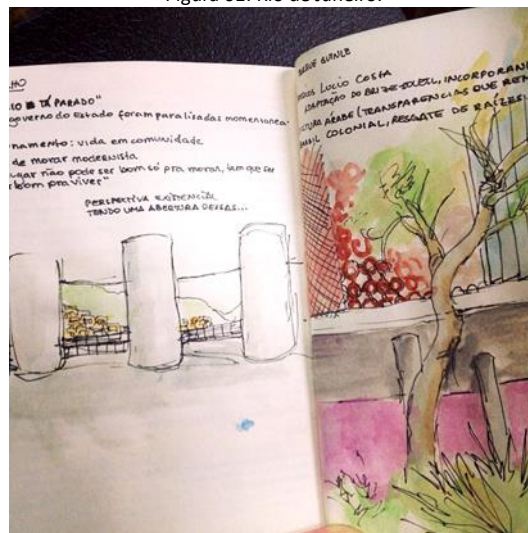 Figura 62: Rio de Janeiro.
"TÁ PARADO"
governo do Estado foram paralisadas momentanea-
namento: vida em comunidade
de morar modernista
gar não pode ser bom só pra morar, tem que ser
bom pra viver"
PERSPECTIVA EXISTENCIAL
TENDO UMA ABERTURA DESSAS...
GUINLE
LUCIO COSTA
ADAPTAÇÃO DO BRIZE-SOLEIL, INCORPORAN
ÁRABE (TRANSPARENCIAS QUE RE
COLONIAL, RESGATE DE RAÍZES